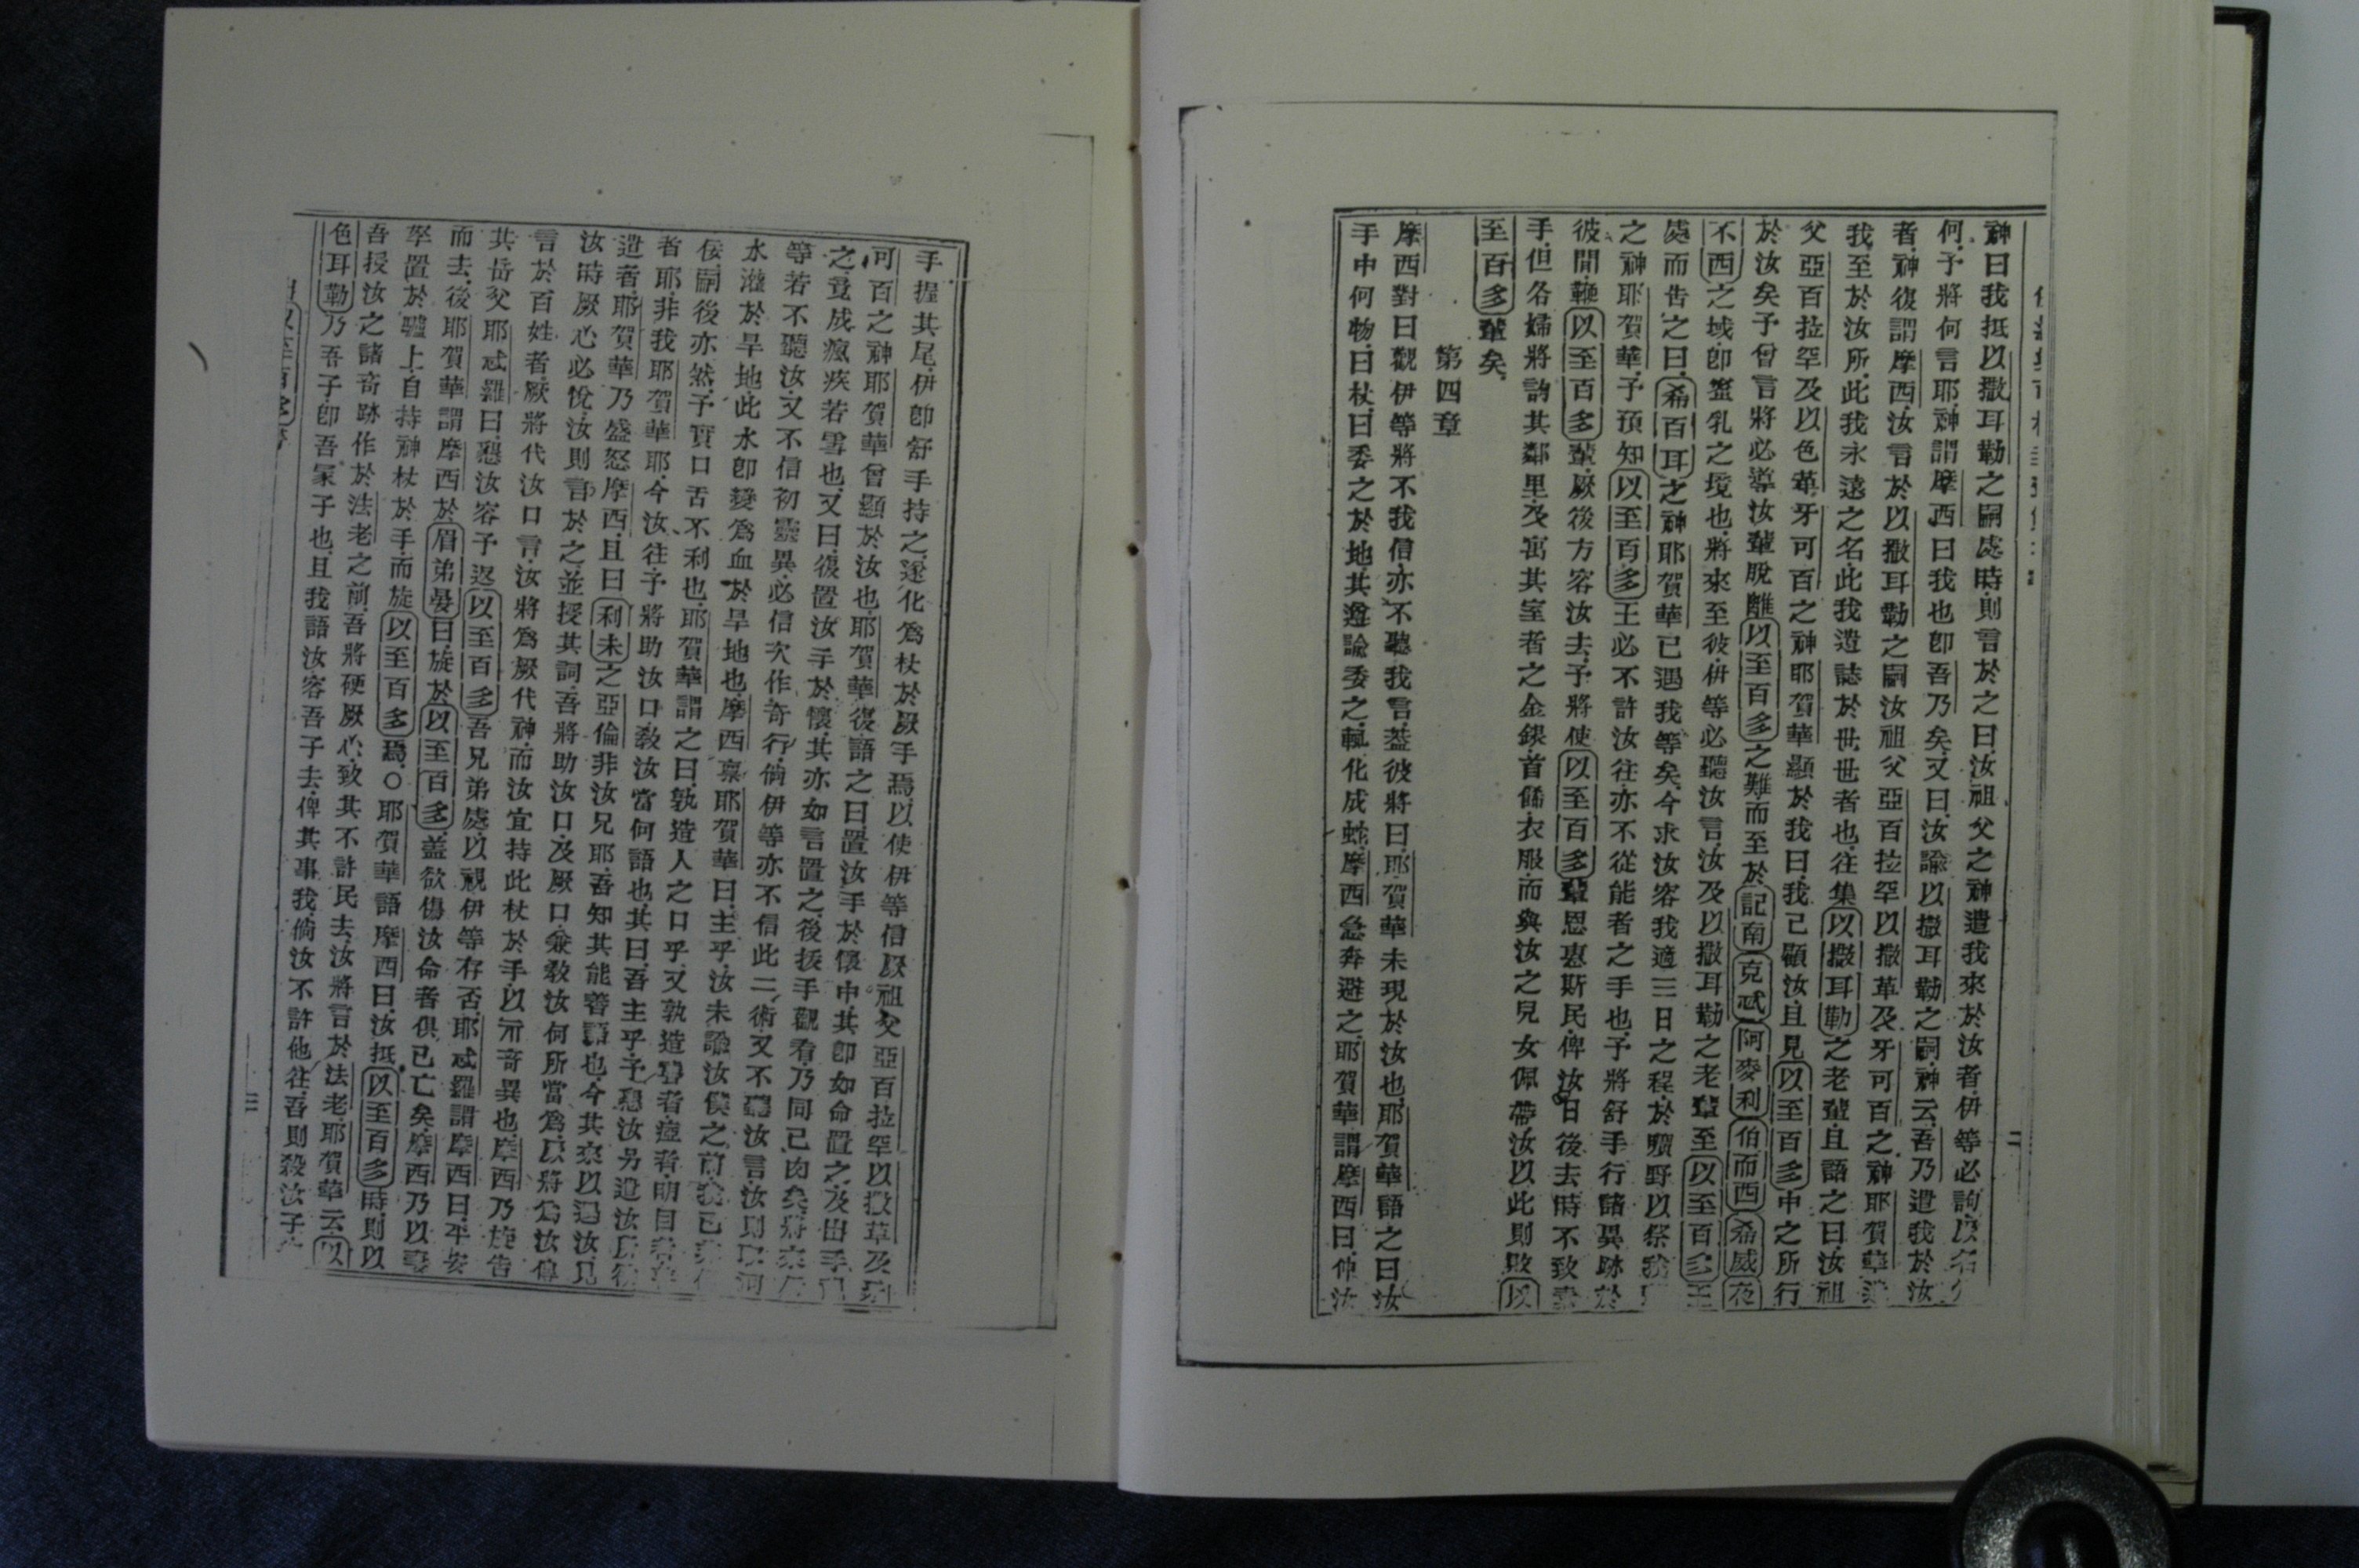 神曰我抵以撒耳勒之嗣處時則言於之曰汝祖父之神遣我來於汝者伊等必詢厥名
何予將何言耶神謂摩西曰我也卽吾乃矣又曰汝諭以撒耳勒之嗣神云吾乃遣我於汝
者神復謂摩西汝言於以撒耳勒之嗣汝祖父亞百拉罕以撒革及牙可百之神耶賀華遣
我至於汝所此我永遠之名此我遺誌於世世者也往集以撒耳勒之老輩且語之曰汝祖
父亞百拉罕及以色革牙可百之神耶賀華顯於我曰我已顧汝且見以至百多中之所行
於汝矣予曾言將必導汝輩脫離以至百多之難而至於記南克忒阿麥利伯而西希威夜
不西之域卽蜜乳之境也將來至彼伊等必聽汝言汝及以撒耳勒之老輩至以至百多王
處而告之曰希百耳之神耶賀華已遇我等矣今求汝容我適三日之程於曠野以祭我
之神耶賀華予預知以至百多王必不許汝往亦不從能者之手也予將舒手行諸異跡於
彼間鞭以至百多輩厥後方容汝去予將使以至百多輩恩惠斯民俾汝日後去時不致
手但各婦將詢其鄰里及寓其室者之金銀首餙衣服而與汝之兒女佩帶汝以此則敗以
至百多輩矣
第四章
摩西對曰觀伊等將不我信亦不聽我言葢彼將曰耶賀華未現於汝也耶賀華語之曰汝
手中何物曰杖曰委之於地其遵諭委之輒化成蛇摩西急奔避之耶賀華謂摩西曰伸汝
手握其尾伊卽舒手持之遂化爲杖於厥手焉以使伊等信厥祖父亞百拉罕以撒革及牙
可百之神耶賀華曾顯於汝也耶賀華復語之曰置汝手於懷中其卽如命置之及出手
之竟成瘋疾若雪也又曰復置汝手於懷其亦如言置之後拔手觀看乃同己肉矣將來伊
等若不聽汝又不信初靈異必信次作奇行倘伊等亦不信此二術又不聽汝言汝則取河
水灌於旱地此水卽變爲血於旱地也摩西禀耶賀華曰主乎汝未諭汝僕之前我已
佞嗣後亦然予實口舌不利也耶賀華謂之曰孰造人之口乎又孰造聾者瘂者明目者
者耶非我耶賀華耶今汝往予將助汝口敎汝當何語也其曰吾主乎予懇汝另遣汝
遣者耶賀華乃盛怒摩西且曰利未之亞倫非汝兄耶吾知其能善語也今其來以遇汝見
汝時厥心必悅汝則言於之並授其詞吾將助汝口及厥口兼敎汝何所當爲厥將爲汝傳
言於百姓者厥將代汝口言汝將爲厥代神而汝宜持此杖於手以示奇異也摩西乃旋告
其岳父耶忒羅曰懇汝容予返以至百多吾兄弟處以視伊等存否耶忒羅謂摩西曰平安
而去後耶賀華謂摩西於眉弟晏曰旋於以至百多葢欲傷汝命者俱已亡矣摩西乃以妻
孥置於驢上自持神杖於手而旋以至百多焉○耶賀華語摩西曰汝抵以至百多時則以
吾授汝之諸奇跡作於法老之前吾將硬厥心致其不許民去汝將言於法老耶賀華云以
色耳勒乃吾子卽吾冡子也且我語汝容吾子去俾其事我倘汝不許他往吾則殺汝子